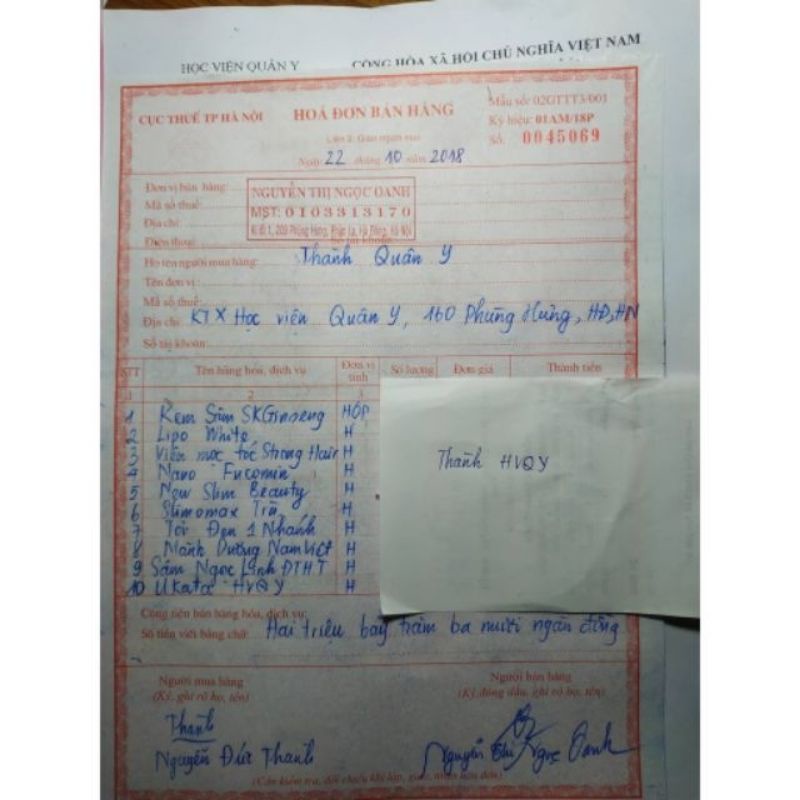 HỌC VIỆN QUÂN Y CỘNG HÒA XÃ HỘI CHỦ NGHĨA VIỆT NAM
CỤC THUẾ TP HÀ NỘI
HOÁ ĐƠN BÁN HÀNG
Liên 2: Giao người mua
Ngày 22 tháng 10 năm 2018
Mẫu số: 02GTTT3/001
Ký hiệu: 01AM/18P
Số: 0045069
Đơn vị bán hàng: NGUYỄN THỊ NGỌC OANH
Mã số thuế: MST: 0103313170
Địa chỉ: Ki ốt 1, 209 Phùng Hưng, Phúc La, Hà Đông, Hà Nội
Điện thoại: Số tài khoản:
Họ tên người mua hàng: Thành Quân Y
Tên đơn vị:
Mã số thuế:
Địa chỉ: KTX Học viện Quân Y, 160 Phùng Hưng, HĐ, HN
Số tài khoản:
STT Tên hàng hóa, dịch vụ Đơn vị tính Số lượng Đơn giá Thành tiền
1 2 3
1 Kem Sâm SKGinseng HỘP
2 Lipo White H
3 Viên mọc tóc Strong Hair H
4 Nano Fucomin H
5 New Slim Beauty H
6 Slimomax Trà H
7 Tỏi Đen 1 Nhánh H
8 Mãnh Dương Nam Việt H
9 Sâm Ngọc Linh ĐTHT H
10 Ukata HVQY H
Thành HVQY
Cộng tiền bán hàng hóa, dịch vụ:
Số tiền viết bằng chữ: Hai triệu bảy trăm ba mươi ngàn đồng
Người mua hàng Người bán hàng
(Ký, ghi rõ họ, tên) (Ký, đóng dấu, ghi rõ họ, tên)
Thành
Nguyễn Đức Thành Nguyễn Thị Ngọc Oanh
(Cần kiểm tra, đối chiếu khi lập, giao, nhận hóa đơn)